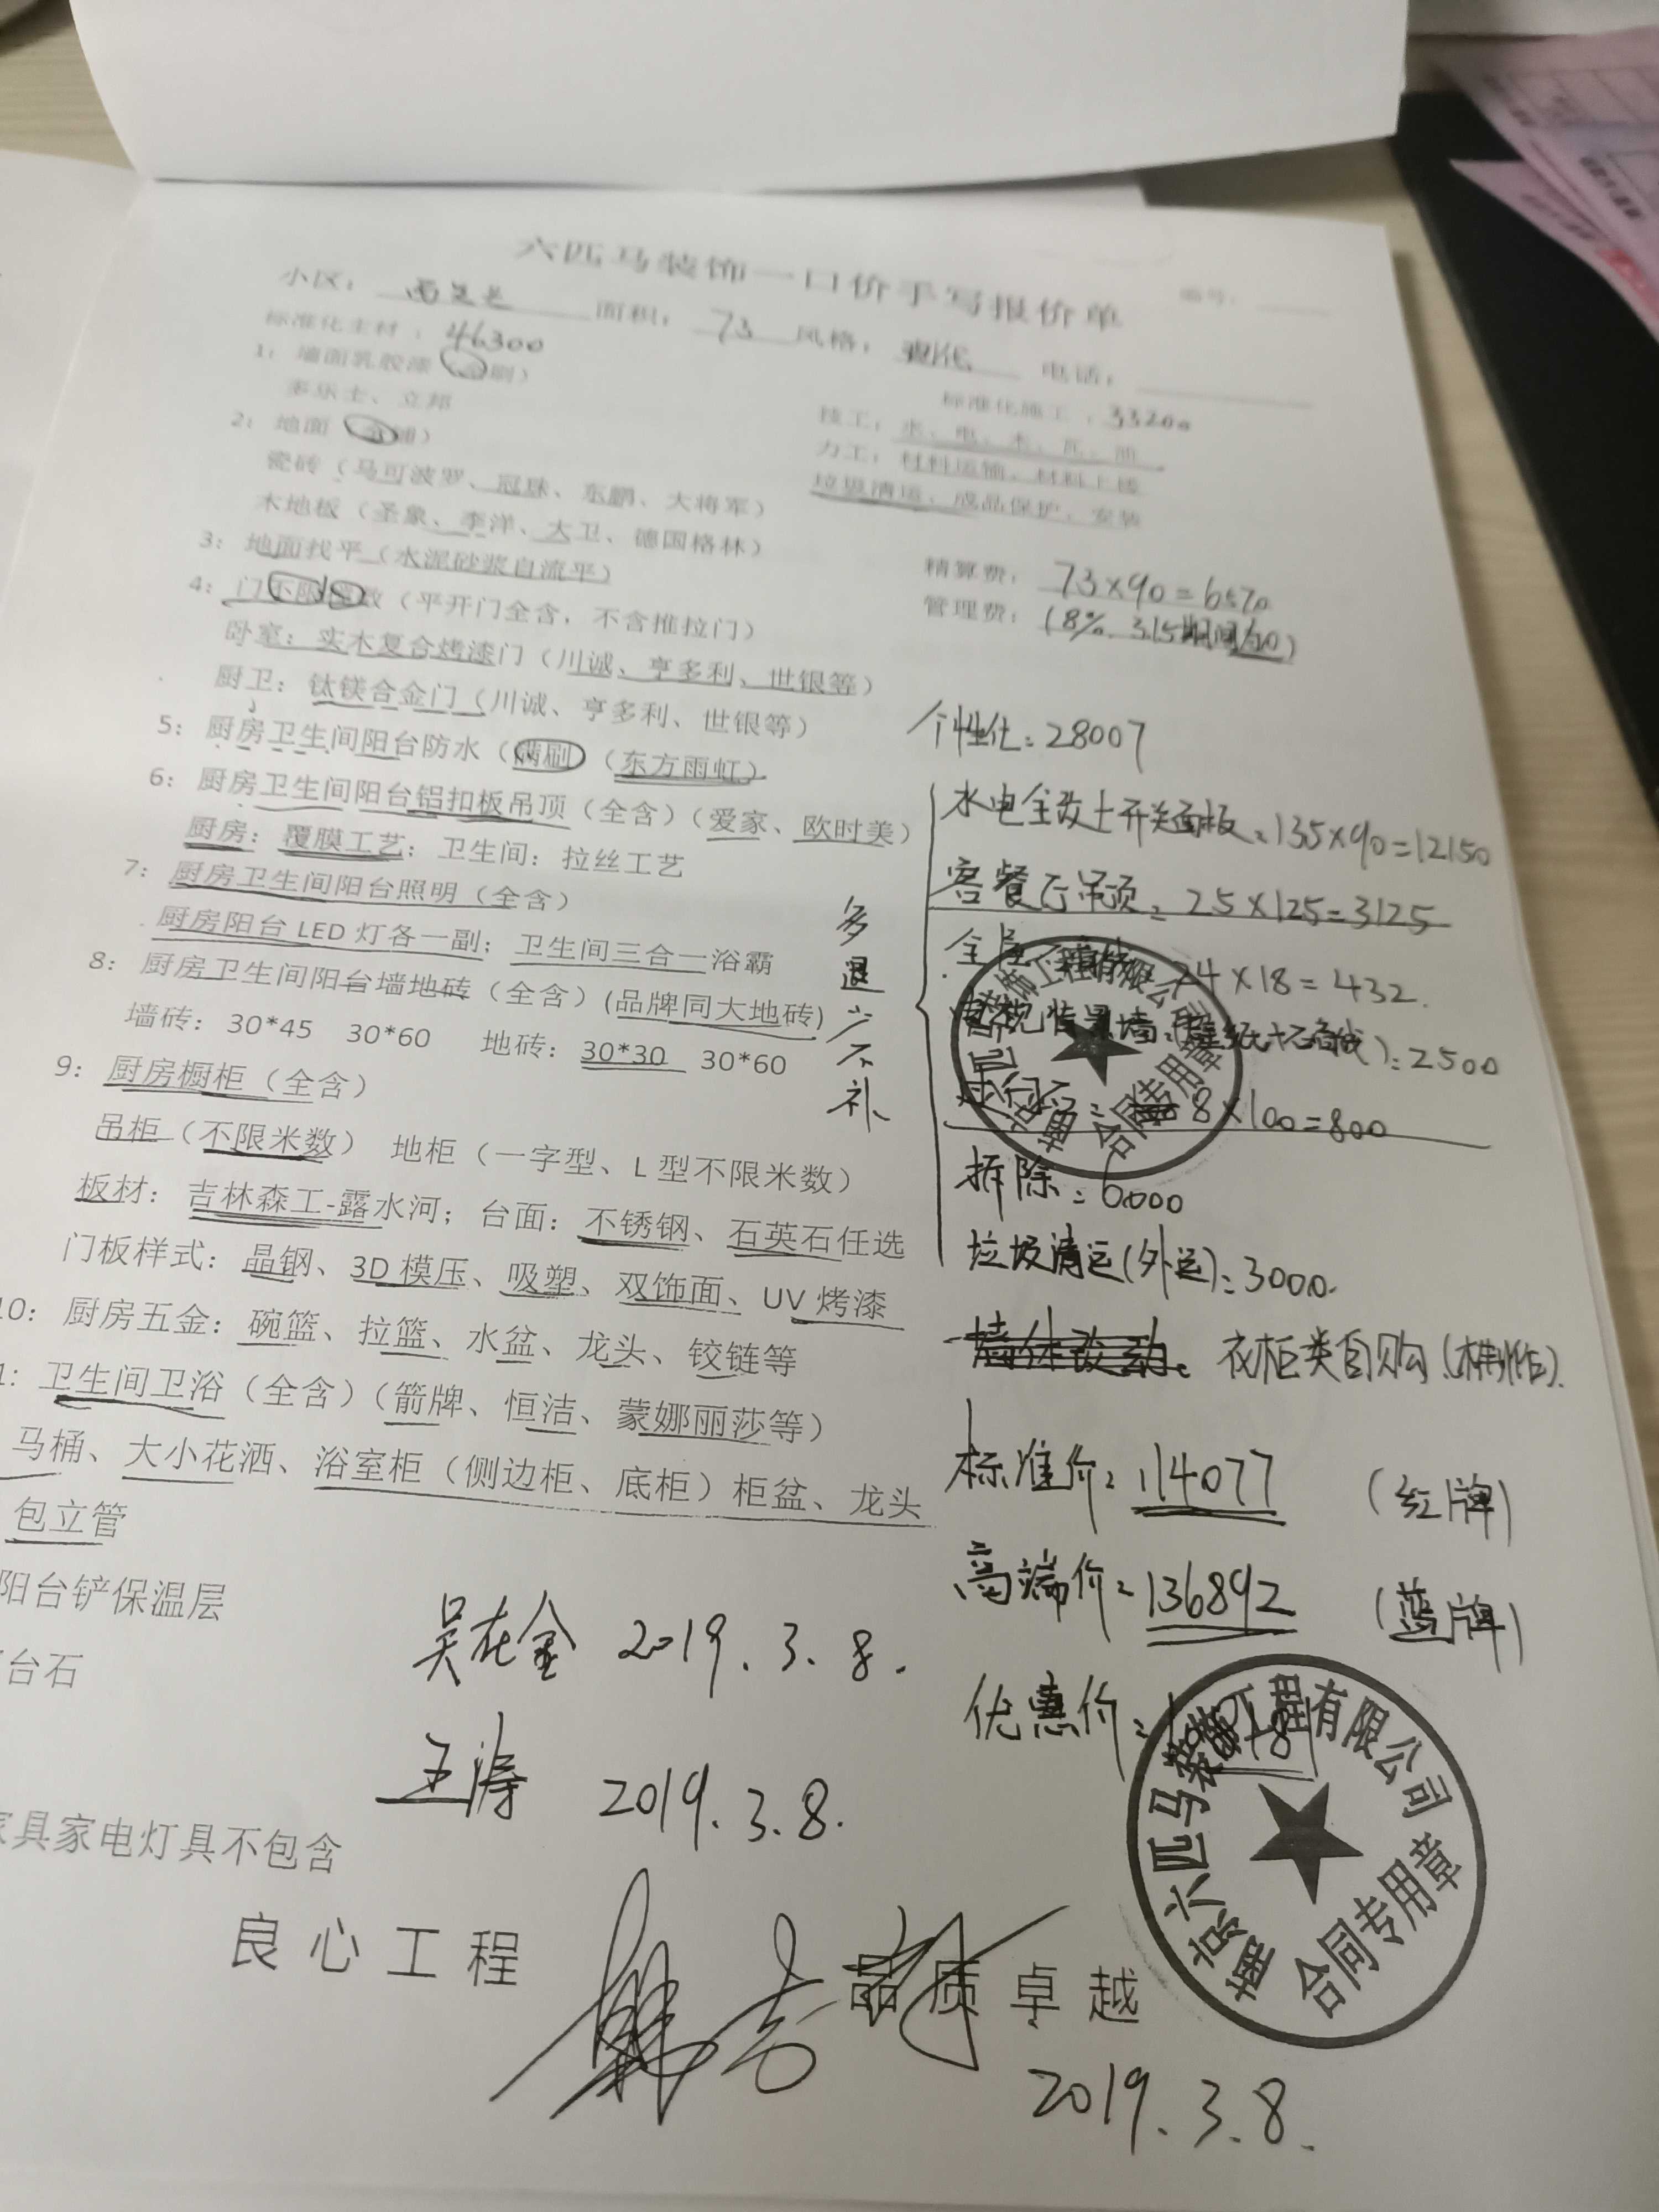 六匹马装饰一口价手写报价单
编号：
小区： 面积：73 风格：现代 电话：
标准化主材：46300
1：墙面乳胶漆（全刷）
多乐士、立邦
2：地面（全铺）
瓷砖（马可波罗、冠珠、东鹏、大将军）
木地板（圣象、李洋、大卫、德国格林）
3：地面找平（水泥砂浆自流平）
4：门不限樘数（平开门全含，不含推拉门）
卧室：实木复合烤漆门（川诚、亨多利、世银等）
厨卫：钛镁合金门（川诚、亨多利、世银等）
5：厨房卫生间阳台防水（满刷）（东方雨虹）
6：厨房卫生间阳台铝扣板吊顶（全含）（爱家、欧时美）
厨房：覆膜工艺；卫生间：拉丝工艺
7：厨房卫生间阳台照明（全含）
厨房阳台 LED 灯各一副；卫生间三合一浴霸
8：厨房卫生间阳台墙地砖（全含）(品牌同大地砖)
墙砖：30*45 30*60 地砖：30*30 30*60
9：厨房橱柜（全含）
吊柜（不限米数） 地柜（一字型、L 型不限米数）
板材：吉林森工-露水河；台面：不锈钢、石英石任选
门板样式：晶钢、3D 模压、吸塑、双饰面、UV 烤漆
10：厨房五金：碗篮、拉篮、水盆、龙头、铰链等
1：卫生间卫浴（全含）（箭牌、恒洁、蒙娜丽莎等）
马桶、大小花洒、浴室柜（侧边柜、底柜）柜盆、龙头
包立管
阳台铲保温层
台石
家具家电灯具不包含
标准化施工：33200
技工：水、电、木、瓦、油
力工：材料运输、材料上楼
垃圾清运、成品保护、安装
精算费：73×90=6570
管理费：(8%. 315期间免)
个性化：28007
多退少不补
水电全改+开关面板：135×90=12150
客餐厅吊顶：25×125=3125
全屋 24×18=432.
电视背景墙：(壁纸+石膏线)：2500
8×100=800
拆除：6000
垃圾清运(外运)：3000.
墙体改动： 衣柜类自购.
标准价：114077 (红牌)
高端价：136892 (蓝牌)
优惠价：
吴在金 2019.3.8.
王涛 2019.3.8.
良心工程 品质卓越
2019.3.8.
装饰工程有限公司
合同专用章
北京六匹马装饰工程有限公司
合同专用章